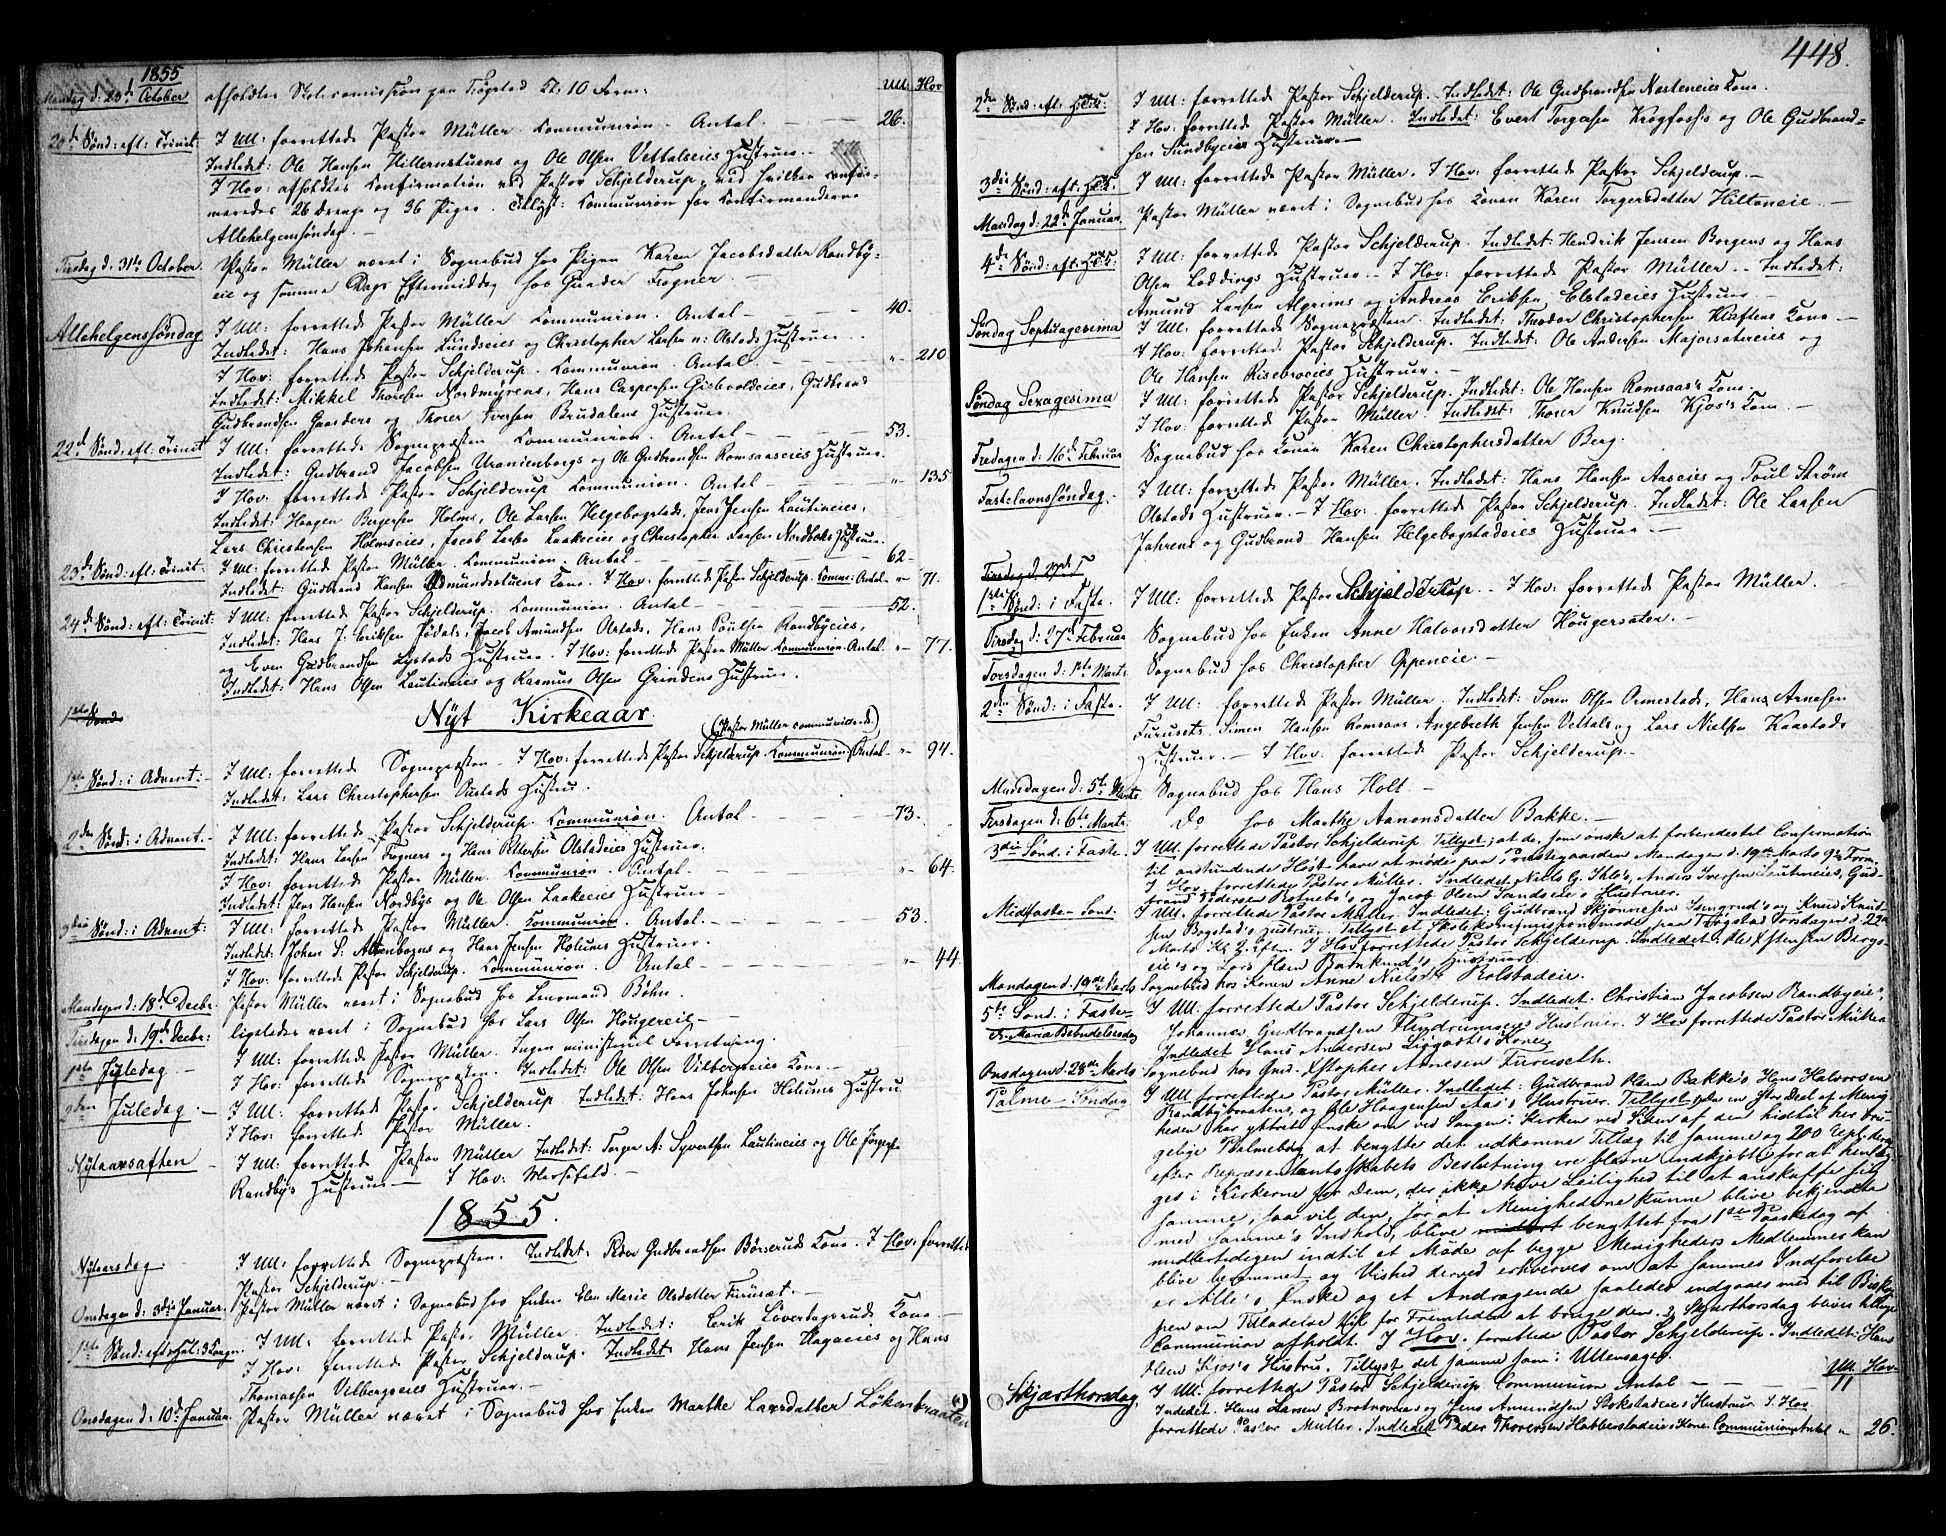 1855
Mandag d: 23d October afholdtes Skolecomission paa Trøgstad Kl: 10 Form: Ull: Hov
20de Sønd: eft: Trinit: I Ull: forrettede Pastor Müller. Communion. Antal — 26.
Indledet: Ole Hansen Hillernstuens og Ole Olsen Vettalseies Hustruer. —
I Hov: afholdtes Confirmation ved Pastor Schjelderup, ved hvilken confir-
meredes 26 Drenge og 36 Piger. Tillyst: Communion for Confirmanderne
Allehelgensøndag. —
Tirsdag d. 31te October. Pastor Müller været i Sognebud hos Pigen Karen Jacobsdatter Randby-
eie og samme Dags Eftermiddag hos Gunder Fogner —
Allehelgenssøndag I Ull: forrettede Pastor Müller Communion. Antal — 40.
Indledet: Hans Johansen Lundseies og Christopher Larsen n: Alstads Hustruer.
I Hov: forrettede Pastor Schjelderup. Communion. Antal — " 210
Indledet: Mikkel Thoresen Nordmyrens, Hans Caspersen Gislevoldeies, Gudbrand
Gudbrandsen Gaarders og Thorer Iversen Brudalens Hustruer.
22d Sønd: eft: Trinit I Ull: forrettede Sognepræsten Communion. Antal — 53.
Indledet: Gudbrand Jacobsen Uranienborgs og Ole Gudbrandsen Romsaaseies Hustruer.
I Hov: forrettede Pastor Schjelderup Communion. Antal — " 135
Indledet: Haagen Bergersen Holms, Ole Larsen Helgebogstads, Jens Jensen Lautineies,
Lars Christensen Holmseies, Jacob Larsen Laakeeies og Christopher Larsen Nordbokes Hustruer.
23de Sønd: eft: Trinit: I Ull: forrettede Pastor Müller. Communion. Antal — 62 -
Indledet: Gudbrand Hansen Asmundsstuens Kone. I Hov: forrettede Pastor Schjelderup. Comm: Antal " 71.
24de Sønd: eft: Trinit: I Ull: forrettede Pastor Schjelderup. Communion. Antal — 52.
Indledet: Hans J: Eriksen Jødals, Jacob Amundsen Alstads, Hans Poulsen Randbyeies,
og Even Gudbrandsen Lystads Hustruer. I Hov: forrettede Pastor Müller Communion. Antal " 77.
Indledet: Hans Olsen Lautineies og Rasmus Olsen Grindens Hustruer.
1ste Sønd
Nÿt Kirkeaar
(Pastor Müller communicerede)
1ste Sønd: i Advent: I Ull: forrettede Sognepræsten — I Hov: forrettede Pastor Schjelderup. Communion. Antal " 94.
Indledet: Lars Christophersen Austads Hustru.
2den Sønd: i Advent. I Ull: forrettede Pastor Schjelderup. Communion. Antal — 73.
Indledet: Hans Larsen Fogners og Hans Pettersen Alstadeies Hustruer.
I Hov: forrettede Pastor Müller. Communion. Antal — " 64.
Indledet: Jens Hansen Nordbys og Ole Olsen Laakeeies Hustruer —
3die Sønd: i Advent: I Ull: forrettede Pastor Müller. Communion. Antal. — 53.
Indledet: Johan S: Altenbogns og Hans Jensen Holums Hustruer.
I Hov: forrettede Pastor Schjelderup. Communion. Antal — " 44.
Mandagen d: 18d Decbr: Pastor Müller været i Sognebud hos Lensmand Böhn.
Tirsdagen d: 19de Decbr: ligeledes været i Sognebud hos Lars Olsen Hougereie —
1ste Juledag. — I Ull: forrettede Pastor Müller. Ingen ministeriel Forretning.
I Hov: forrettede Sognepræsten. Indledet: Ole Olsen Vilbergeies Kone —
2den Juledag. — I Ull: forrettede Pastor Schjelderup. Indledet: Hans Johnsen Holums Hustru
I Hov: forrettede Pastor Müller.
Nytaarsaften — I Ull: forrettede Pastor Müller Indledet: Torger A: Syvertsen Lautineies og Ole
Randby's Hustruer — I Hov: Messefald. —
1855.
Nytaarsdag. I Ull: forrettede Sognepræsten. Indledet: Peder Gudbrandsen Börserud's Kone. I Hov: forrettede
Pastor Schjelderup. —
Onsdagen d: 3die Januar. Pastor Müller været i Sognebud hos Enken Elen Marie Olsdatter Furusat. —
1ste Sønd: eft: Hel: 3 Konger. I Ull: forrettede Pastor Müller. Indledet: Erik Löverdagsrud Kone —
I Hov: forrettede Pastor Schjelderup. Indledet: Hans Jensen Hagaeies og Hans
Thomassen Vilbergeies Hustruer. —
Onsdagen d: 10de Januar. Pastor Müller været i Sognebud hos Enken Marthe Larsdatter Løkenbraaten
448.
2den Sønd: eft: H. 3 K: I Ull: forrettede Pastor Schjelderup. Indledet: Ole Gudbrandsen Nasteneies Kone.
I Hov: forrettede Pastor Müller. Indledet: Evert Torgersen Krogfoss's og Ole Gudbrand-
sen Sundbyeies Hustruer —
3die Sønd: eft: H.3.K. I Ull: forrettede Pastor Müller. I Hov: forrettede Pastor Schjelderup. —
Mandag d: 22de Januar Pastor Müller været i Sognebud hos Konen Karen Torgersdatter Hiltoneie. —
4de Sønd: eft: H.3.K: I Ull: forrettede Pastor Schjelderup. Indledet: Hendrik Jensen Borgens og Hans
Olsen Loddings Hustruer. — I Hov: forrettede Pastor Müller. — Indledet:
Amund Larsen Algrims og Andreas Eriksen, Elstadeies Hustruer —
Søndag Septuagesima I Ull: forrettede Sognepræsten. Indledet: Theodor Christophersen Kløftens Kone —
I Hov: forrettede Pastor Schjelderup. Indledet: Ole Andersen Majorsætereies og
Ole Hansen Risebroeies Hustruer. —
Søndag Sexagesima I Ull: forrettede Pastor Schjelderup. Indledet: Ole Hansen Romsaas's Kone.
I Hov: forrettede Pastor Müller. Indledet: Thorer Knudsen Kjos's Kone. —
Fredagen d: 16de Februar Sognebud hos Konen Karen Christophersdatter Berg.
Fastelavnssøndag. I Ull: forrettede Pastor Müller. Indledet: Hans Hansen Aaseies og Poul Strøm
Alstads Hustruer. — I Hov: forrettede Pastor Schjelderup. Indledet: Ole Larsen
Jahrens og Gudbrand Hansen Helgebogstadeies Hustruer —
Tirsdag d. 27de F
1ste Sønd: i Faste. I Ull: forrettede Pastor Schjelderup. — I Hov: forrettede Pastor Müller.
Tirsdag d: 27de Februar Sognebud hos Enken Anne Halvorsdatter Hougersæter. —
Torsdagen d: 1ste Marts. Sognebud hos Christopher Oppeneie. —
2den Sønd: i Faste. I Ull: forrettede Pastor Müller. Indledet: Soren Olsen Ormestads, Hans Arnesen
Furusets, Simen Hansen Romsaas, Angebreth Jensen Vettals og Lars Nielsen Kaastads
Hustruer. — I Hov: forrettede Pastor Schjelderup. —
Mandagen d: 5te Marts. Sognebud hos Hans Holt —
Tirsdagen d: 6te Marts. Do hos Marthe Aanonsdatter Bakke. —
3die Sønd. i Faste. I Ull. forrettede Pastor Schjelderup Tillyst, at de, som ønske at forberedes til Confirmation
til anstundende Høst have at møde paa Præstegaarden Mandagen d: 19de Marts 9 ½ Form.
I Hov. forrettede Pastor Müller. Indledet Niels G. Ihle's, Anders Iversen Lautneies, Gud-
brand Pedersen Rotnebo's og Jacob Olsen Sandseie's Hustruer.
Midfaste-Sønd. I Ull. forrettede Pastor Müller. Indledet: Gudbrand Skjønnesen Isingrud's og Knud Knud-
sen Bogstad's Hustruer. Tillyst et Skolekomissionsmøde paa Trøgstad Torsdagen d. 22de
Marts Kl 2 Eft. I Hov forrettede Pastor Schjelderup. Indledet: Ole Estensen Bergs-
eie's og Lars Olsen Barnkind's Hustruer.
Mandagen d: 19de Marts Sognebud hos Konen Anne Nielsd Rolstadeie.
5te Sønd. i Faste & Maria Bebudelsesdag I Ull. forrettede Pastor Schjelderup. Indledet: Christian Jacobsen Randbyeie's,
Johannes Gudbrandsen Flydrumseies Hustruer. I Hov forrettede Pastor Müller
Indledet Hans Andersen Liogodt's Kone.
Onsdagen d. 28de Marts Sognebud hos Gmd. Xstopher Arnesen Furuseth.
Palme-Søndag I Ull forrettede Pastor Müller. Indledet: Gudbrand Olsen Bakke's, Hans Halvorsen
Randbybraatens, og Ole Haagensen Aas's Hustruer. Tillyst at en stor Deel af Menig-
heden har yttret Ønske om ved Sangen i Kirken ved Siden af den hidtil her bru-
gelige Psalmebog at benytte det udkomne Tillæg til samme og 200 Expl. deraf
efter Repræsentantskabets Beslutning ere blevne indkjøbte for at henlæg-
ges i Kirkerne for Dem, der ikke have Leilighed til at anskaffe sig
samme, saa vil den, for at Menighederne kunne blive bekjendte
med samme's Indhold, blive benyttet fra 1ste Paaskedag af
midlertidigen indtil et Møde af begge Menigheders Medlemmer kan
blive berammet og Vished derved erhverves om at sammes Indførelse
er Alle's Ønske og et Andragende saaledes indgaaes med til Biskop-
pen om Tilladelse til for Fremtiden at bruge den. 2) Skjærthorsdag bliver hellige
Communion afholdt. I Hov. forrettede Pastor Schjelderup. Indledet: Hans
Olsen Kjos's Hustru. Tillyst det samme som i Ullensager.
Ull. Hov
Skjærthorsdag I Ull. forrettede Pastor Schjelderup Communion Antal — 11
Indledet: Hans Larsen Brotnoeies og Jens Amundsen Stokstadeies Hustruer. I Hov
forrettede Pastor Müller. Indledet Peder Thoversen Habberstadeies Kone. Communion Antal " 26.